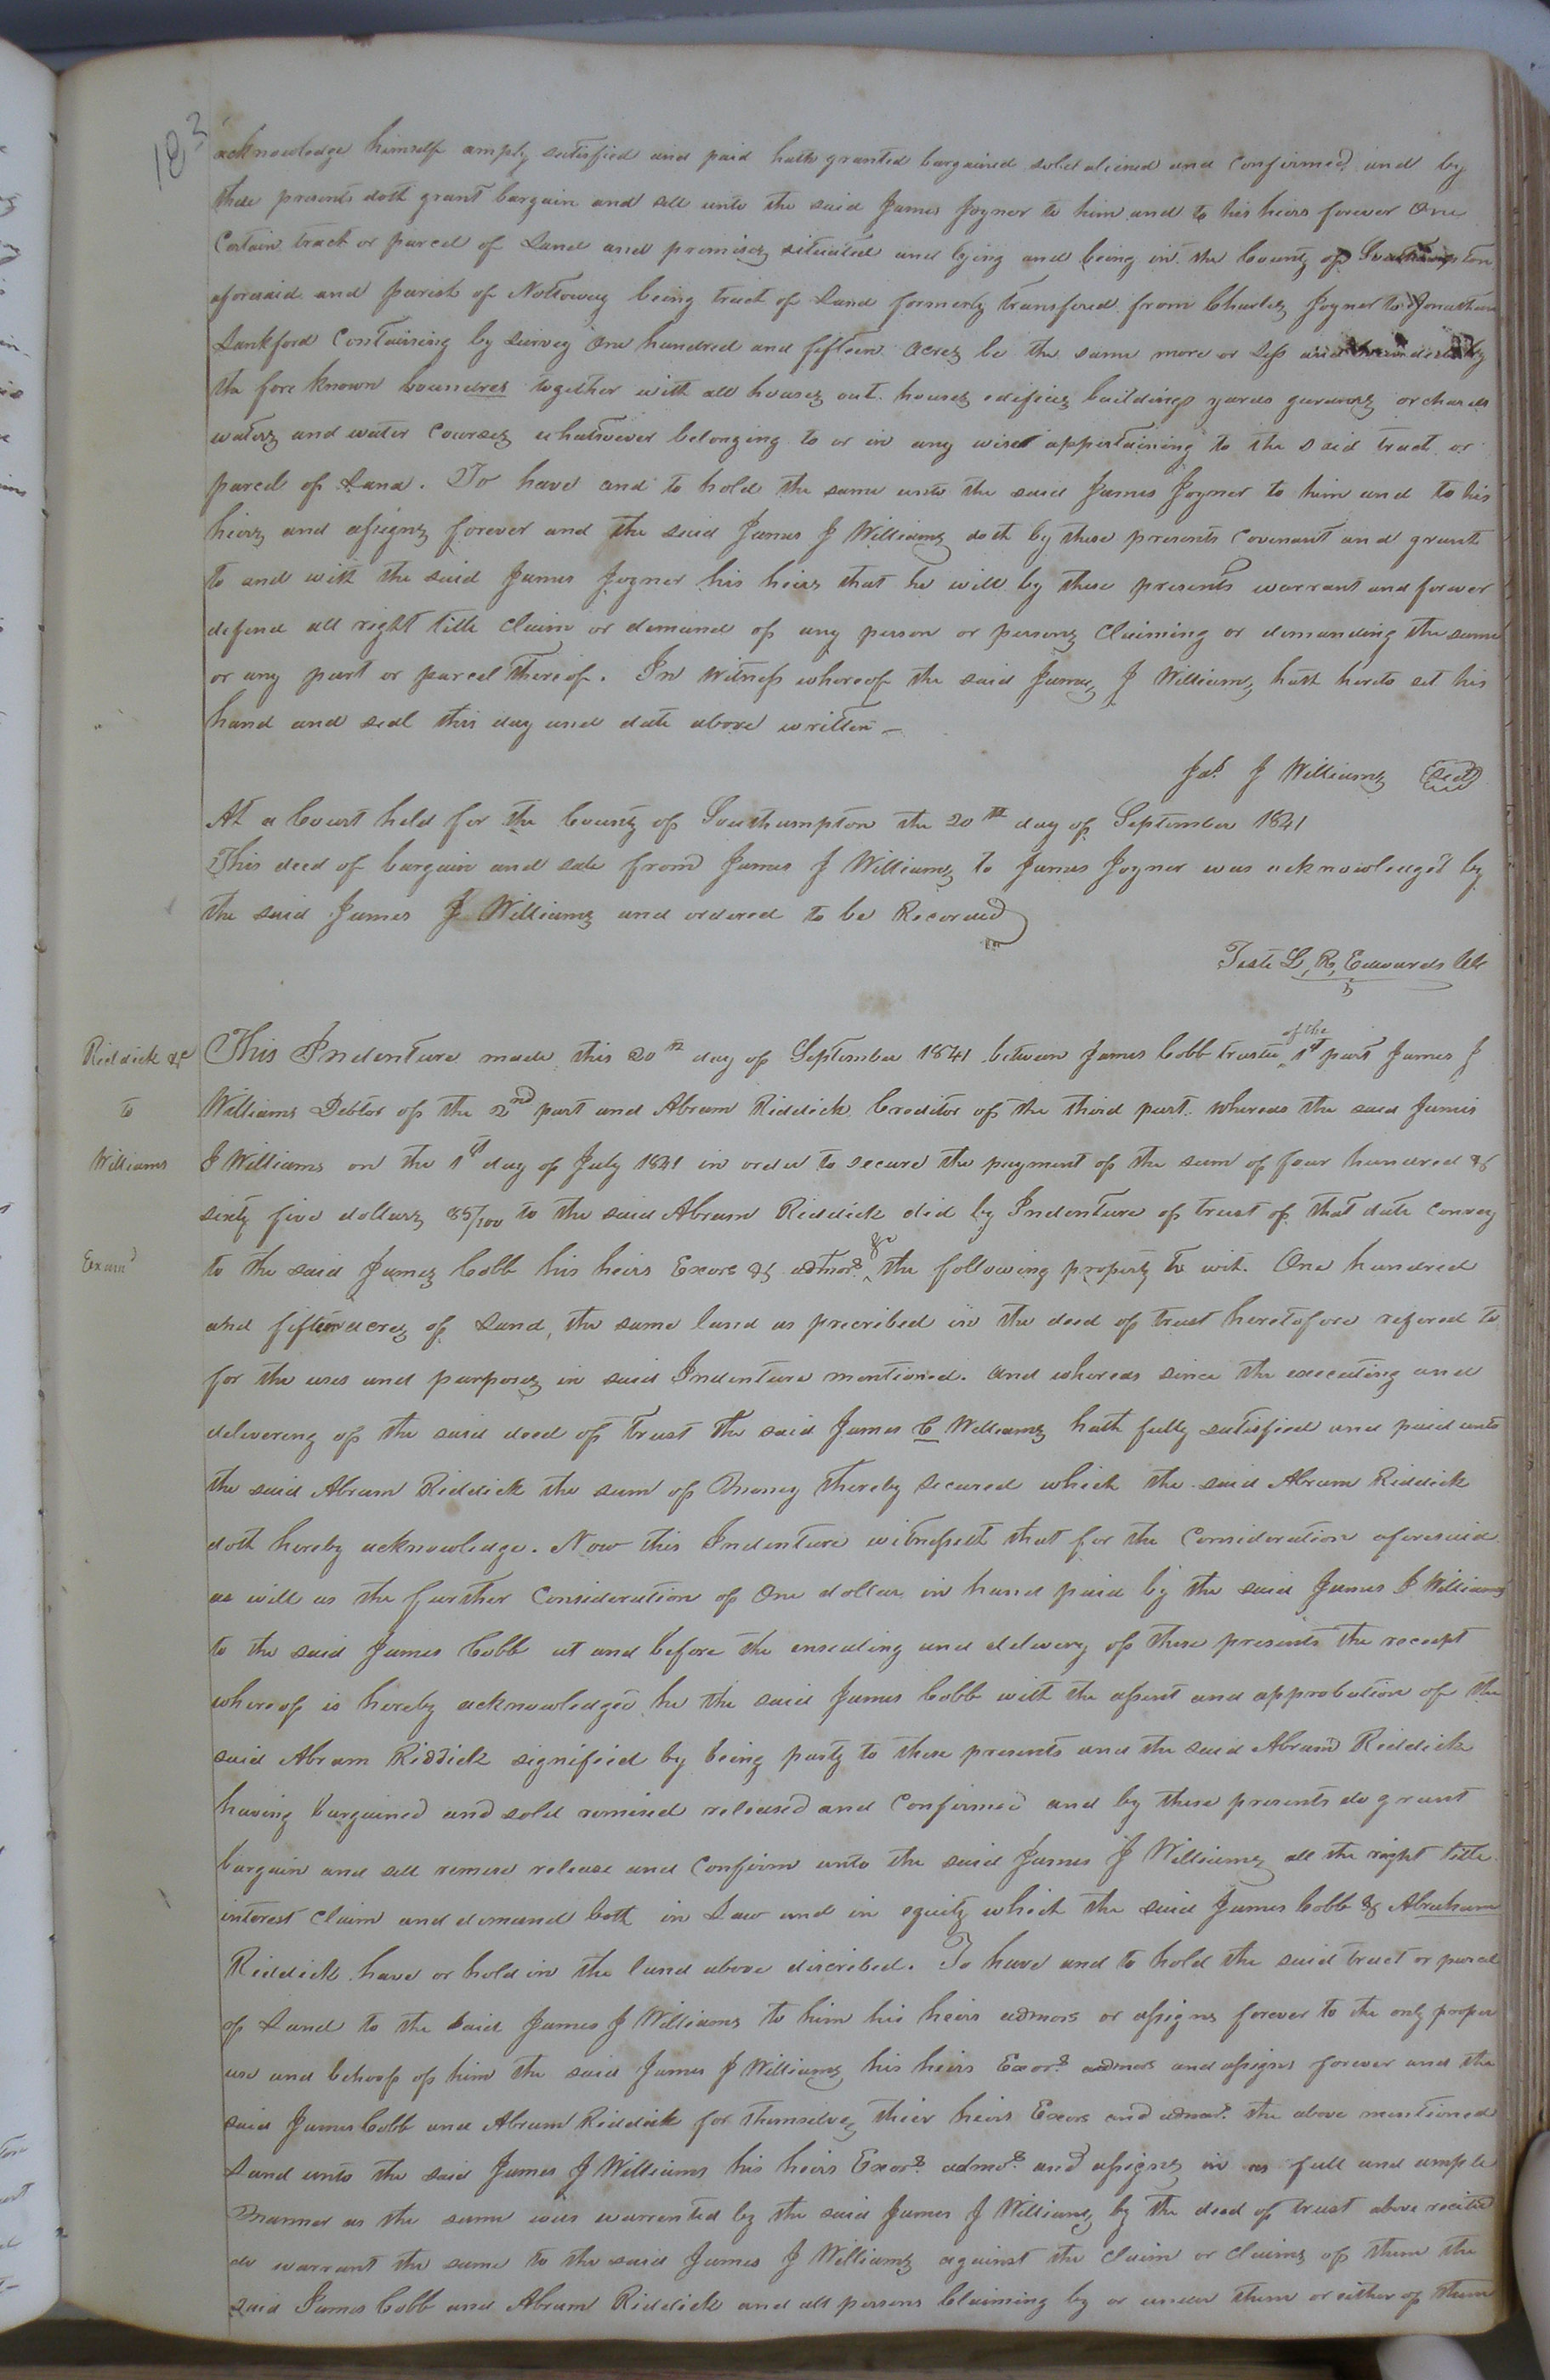 183
acknowledge himself amply satisfied and paid hath granted bargained sold aliened and confirmed and by
these presents doth grant bargain and sell unto the said James Joyner to him and to his heirs forever One
Certain tract or parcel of Land and premises situated and lying and being in the County of Southampton
aforesaid and parish of Nottoway being tract of Land formerly transfered from Charles Joyner to Jonathan
Lankford Containing by survey One hundred and fifteen acres be the same more or less and by
the fore known boundres together with all houses out houses edifices buildings yards gardens orchards
waters and water Courses whatsoever belonging to or in any wise appertaining to the said tract or
parcel of Land. To have and to hold the same unto the said James Joyner to him and to his
heirs and assigns forever and the said James J Williams doth by these presents Covenant and grant
to and with the said James Joyner his heirs that he will by these presents warrant and forever
defend all right title Claim or demand of any person or persons Claiming or demanding the same
or any part or parcel thereof. In Witness whereof the said James J Williams hath hereto set his
hand and seal this day and date above written –
Jas. J Williams (Seal)
At a Court held for the County of Southampton the 20th day of September 1841
This deed of bargain and sale from James J Williams to James Joyner was acknowledged by
the said James J Williams and ordered to be Recorded
Teste L, R, Edwards Clk
Riddick &c
to
Williams
Examd
of the
This Indenture made this 20th day of September 1841 between James Cobb trustee 1st part James J
Williams Debtor of the 2nd part and Abram Riddick Creditor of the third part. Whereas the said James
J Williams on the 1st day of July 1841 in order to secure the payment of the sum of four hundred &
sixty five dollars 85/100 to the said Abram Riddick did by Indenture of trust of that date convey
to the said James Cobb his heirs Exors & admors. &c the following property to wit. One hundred
and fifteen acres of Land, the same land as precribed in the deed of trust heretofore refered to
for the uses and purposes in said Indenture mentioned. And whereas since the executing and
delivering of the said deed of trust the said James C Williams hath fully satisfied and paid unto
the said Abram Riddick the sum of Money thereby secured which the said Abram Riddick
doth hereby acknowledge. Now this Indenture witnesseth that for the Consideration aforesaid
as will as the further Consideration of One dollar in hand paid by the said James J Williams
to the said James Cobb at and before the ensealing and delivery of these presents the receipt
whereof is hereby acknowledged he the said James Cobb with the assent and approbation of the
said Abram Riddick signified by being party to these presents and the said Abram Riddick
having bargained and sold remised released and Confirmed and by these presents do grant
bargain and sell remise release and Confirm unto the said James J Williams all the right title
interest claim and demand both in Law and in equity which the said James Cobb & Abraham
Riddick have or hold in the land above discribed. To have and to hold the said tract or parcel
of Land to the said James J Williams to him his heirs admors or assigns forever to the only proper
use and behoof of him the said James J Williams his heirs Exors. admors and assigns forever and the
said James Cobb and Abram Riddick for themselves their heirs Exors and admors. the above mentioned
Land unto the said James J Williams his heirs Exors. admors. and assigns in as full and ample
Manner as the same was warrented by the said James J Williams by the deed of trust above recited
do warrant the same to the said James J Williams against the claim or claims of them the
said James Cobb and Abram Riddick and all persons Claiming by or under them or either of them